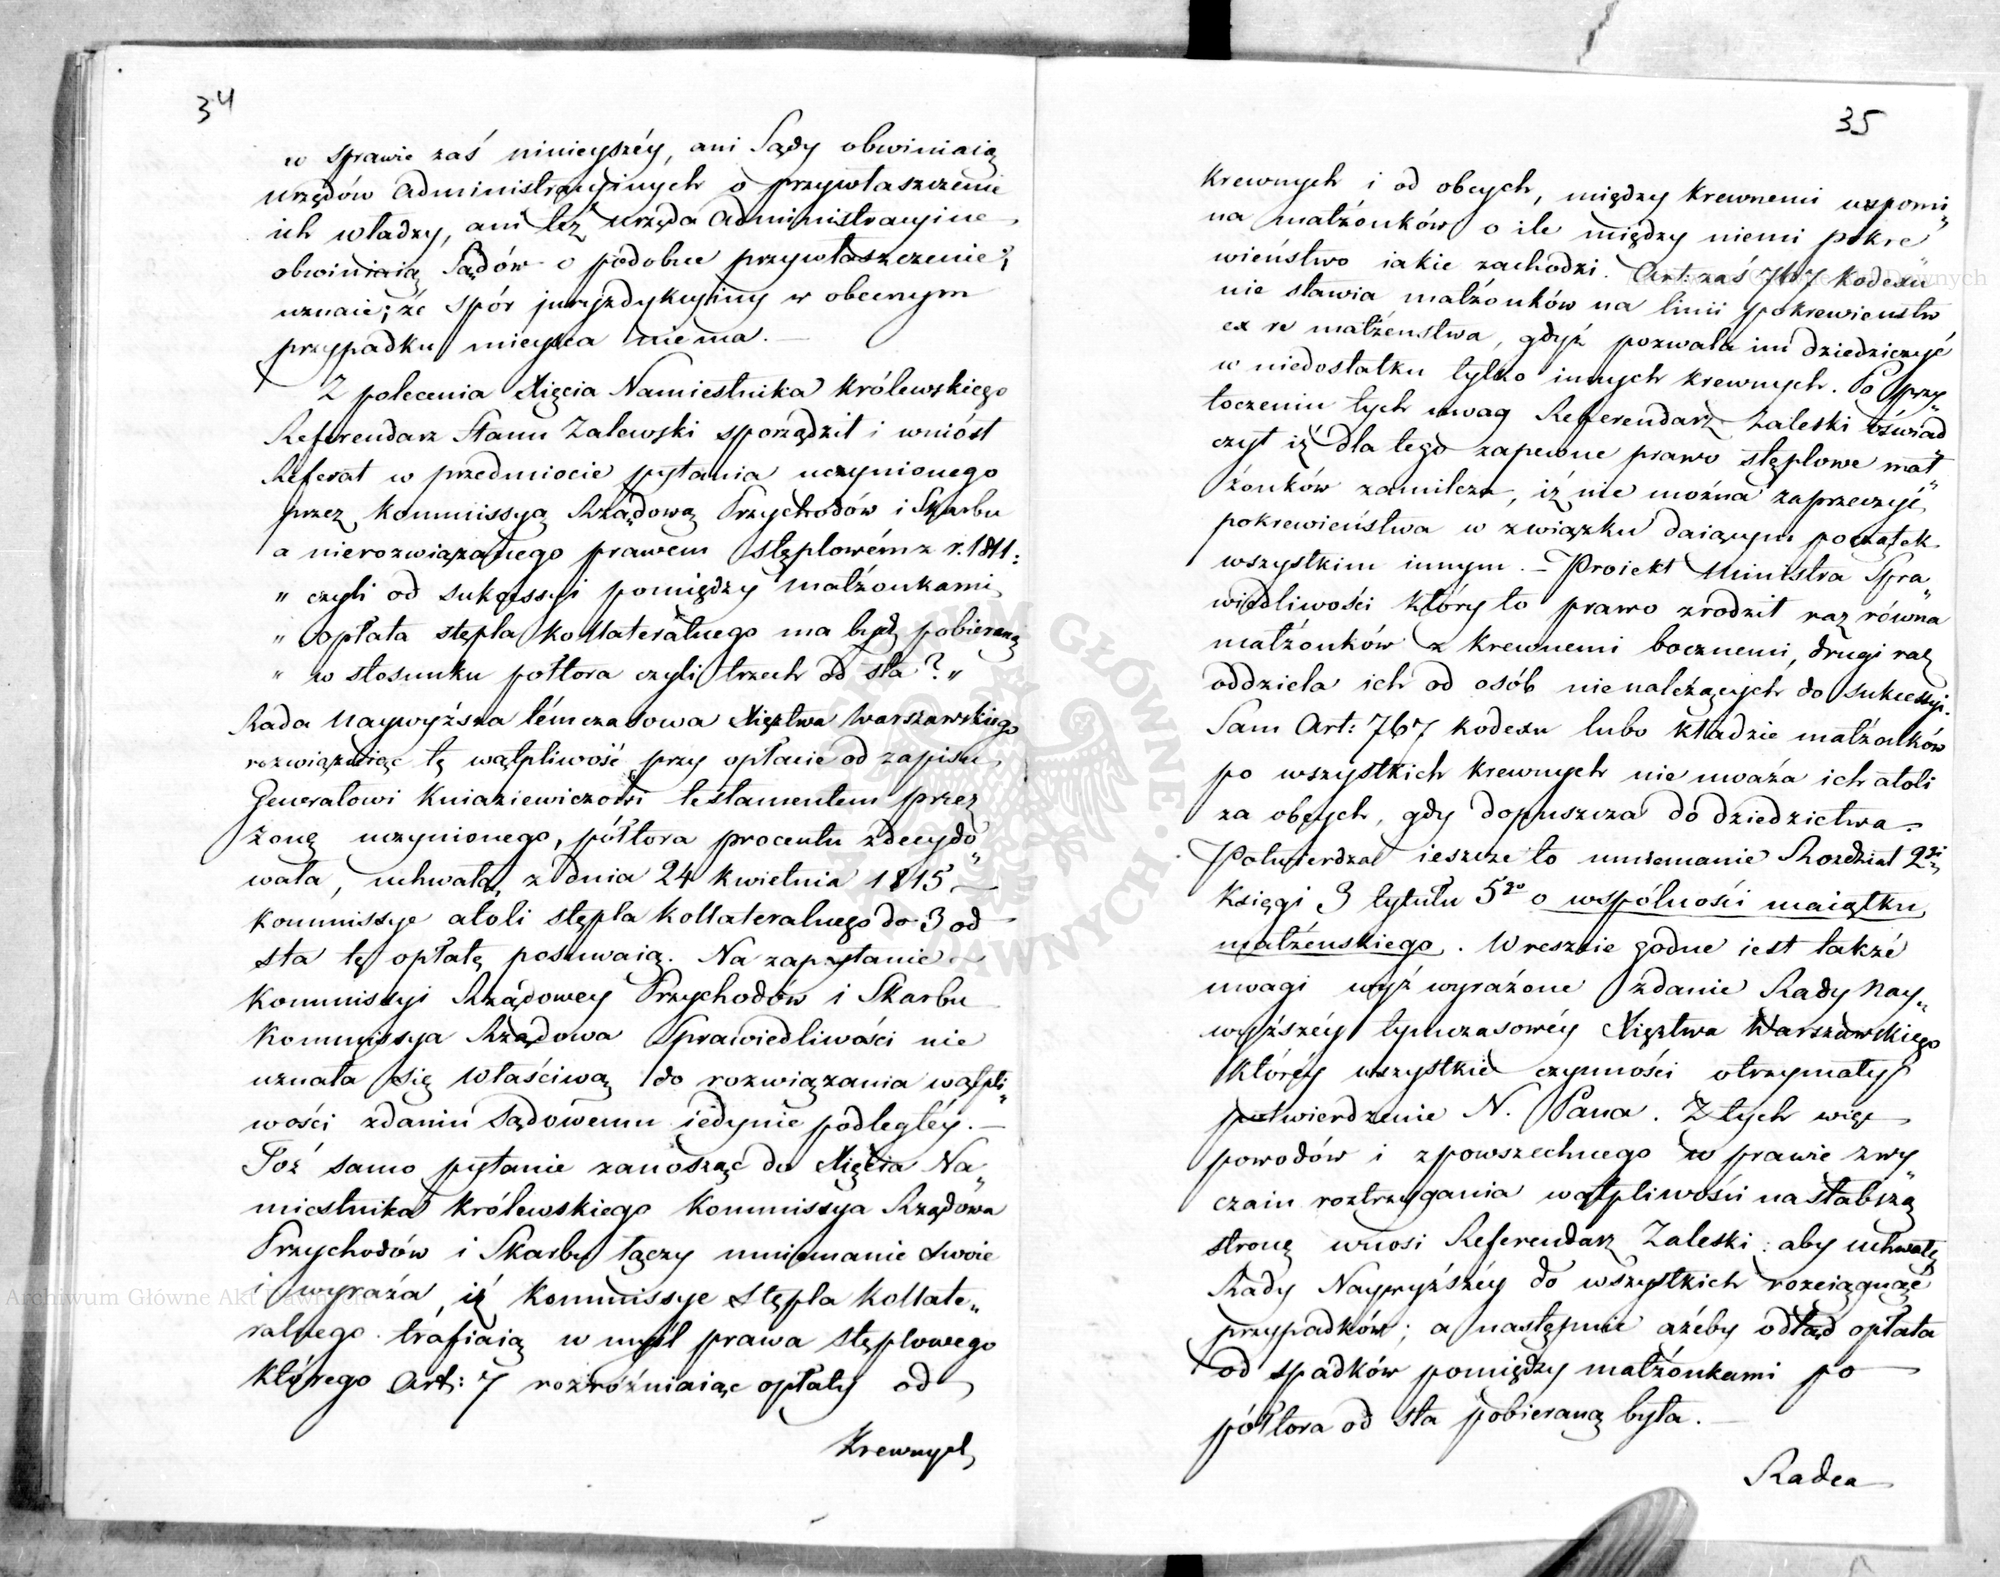 34
w sprawie zaś ninieyszéy, ani Sądy obwiniaią
urzędów administracyinych o przywłaszczenie
ich władzy, ani też urzęda administracyine
obwiniaią Sądów o podobne przywłaszczenie;
uznaie; że spór jurysdykcyiny w obecnym
przypadku mieysca niema. —
Z polecenia Xięcia Namiestnika Królewskiego
Referendarz Stanu Zalewski sporządził i wniósł
Referat w przedmiocie pytania uczynionego
przez Kommissyą Rządową Przychodów i Skarbu
a nierozwiązanego prawem stęplowém z r. 1811:
" czyli od sukcessyi pomiędzy małżonkami
" opłata stępla kollateralnego ma bydź pobieraną
" w stosunku półtora czyli trzech od sta? "
Rada Naywyższa témczasowa Xięztwa Warszawskiego
rozwiązuiąc tę wątpliwość przy opłacie od zapisu
Generałowi Kniaziewiczowi testamentem przez
żonę uczynionego, półtora procentu zdecydo„
wała, uchwałą z dnia 24 Kwietnia 1815 —
Kommissye atoli stępla kollateralnego do 3 od
sta tę opłatę posuwaią. Na zapytanie
Kommissyi Rządowey Przychodów i Skarbu
Kommissya Rządowa Sprawiedliwości nie
uznała się właściwą do rozwiązania wątpli„
wości zdaniu sądowemu iedynie podległéy. —
Toż samo pytanie zanosząc do Xięcia Na„
miestnika Królewskiego Kommissya Rządowa
Przychodów i Skarbu łączy mniemanie swoie
i wyraża, iż Kommissye stępla kollate„
ralnego trafiaią w myśl prawa stęplowego
którego Art: 7 rozróżniaiąc opłaty od
Krewnych
35
Krewnych i od obcych, między krewnemi wspomi„
na małżonków o ile między niemi pokre„
wieństwo iakie zachodzi. Art. zaś 767 kodexu
nie stawia małżonków na linii pokrewieństw
ex re małżenstwa, gdyż pozwala im dziedziczyć
w niedostatku tylko innych krewnych. Po przy„
toczeniu tych uwag Referendarz Zaleski oświad„
czył iż dla tego zapewne prawo stęplowe mał„
żonków zamilcza, iż nie można zaprzeczyć
pokrewieństwa w związku daiącym początek
wszystkim innym. — Proiekt Ministra Spra„
wiedliwości który to prawo zrodził raz równa
małżonków z krewnemi bocznemi, drugi raz
oddziela ich od osób nienależących do sukcessyi.
Sam Art: 767 kodexu lubo kładzie małżonków
po wszystkich krewnych nie uważa ich atoli
za obcych, gdy dopuszcza do dziedzictwa.
Potwierdza ieszcze to mniemanie Rozdział 2gi
Księgi 3 tytułu 5go o wspólności maiątku
małżeńskiego. Wreszcie godne iest także
uwagi wyż wyrażone zdanie Rady Nay„
wyższéy tymczasowéy Xięztwa Warszawskiego
któréy wszystkie czynności otrzymały
potwierdzenie N. Pana. Z tych więc
powodów i z powszechnego w prawie zwy„
czaiu roztrzygania wątpliwości na słabszą
stronę wnosi Referendarz Zaleski: aby uchwałę
Rady Naywyższéy do wszystkich rozciągnąć
przypadków; a następnie ażeby odtąd opłata
od spadków pomiędzy małżonkami po
półtora od sta pobieraną była. —
Radca
Archiwum Główne Akt Dawnych
ARCHIWUM GŁÓWNE AKT DAWNYCH